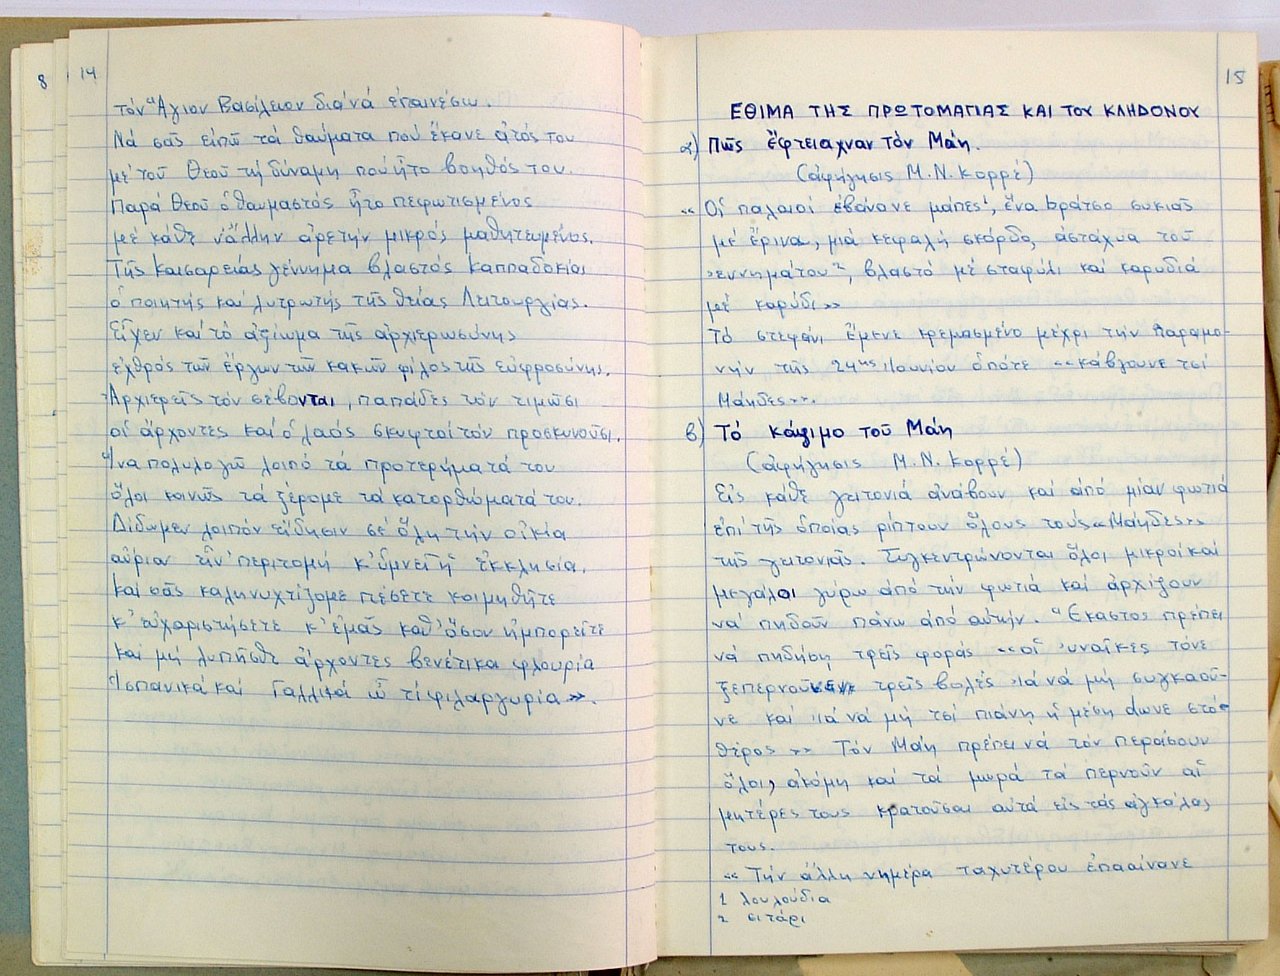 8
14
τόν Ἅγιον Βασίλειον διά νά ἐπαινέσω.
Νά σᾶς εἰπῶ τά θαύματα πού ἔκανε ἀτός του
μέ τοῦ Θεοῦ τή δύναμη πού ἦτο βοηθός του.
Παρά Θεοῦ ὁ θαυμαστός ἦτο πεφωτισμένος
μέ κάθε ν'ἄλλην ἀρετήν μικρός μαθητευμένος.
Τῆς Καισαρείας γέννημα βλαστός Καππαδοκίας
ὁ ποιητής καί λυτρωτής τῆς θείας Λειτουργίας.
Εἶχεν καί τό ἀξίωμα τῆς ἀρχιερωσύνης
ἐχθρός τῶν ἔργων τῶν κακῶν φίλος τῆς εὐφροσύνης.
Ἀρχιερεῖς τόν σέβονται, παπάδες τόν τιμῶσι
οἱ ἄρχοντες καί ὁ λαός σκυφτοί τόν προσκυνοῦσι.
Ἵνα πολυλογῶ λοιπό τά προτερήματά του
ὅλοι κοινῶς τά ξέρομε τά κατορθώματά του.
Δίδωμεν λοιπόν εἴδησιν σέ ὅλη τήν οἰκία
αὔριον τήν περιτομή κ' ὑμνεῖ ἡ ἐκκλησία.
Καί σᾶς καληνυχτίζομε πέσετε κοιμηθῆτε
κ' εὐχαριστήσετε κ' ἐμᾶς καθ' ὅσον ἠμπορεῖτε
καί μή λυπῆσθε ἄρχοντες βενέτικα φλουρία
Ἱσπανικά καί Γαλλικά τί φιλαργυρία».
15
ΕΘΙΜΑ ΤΗΣ ΠΡΩΤΟΜΑΓΙΑΣ ΚΑΙ ΤΟΥ ΚΛΗΔΟΝΟΥ
α) Πῶς ἔφτειαχναν τόν Μάη.
(ἀφήγησις Μ.Ν. Κορρέ)
«Οἱ παλαιοί ἐβάνανε μάπες¹, ἕνα μπράτσο συκιᾶς
μέ ἔρινα, μιά κεφαλή σκόρδο, ἀστάχυα τοῦ
'εννημάτου², βλαστό μέ σταφύλι καί καρυδιά
μέ καρύδι»
Τό στεφάνι ἔμενε κρεμασμένο μέχρι τήν παραμο-
νήν τῆς 24ης Ἰουνίου ὁπότε «κάβγουνε τσί
Μάηδες».
β) Τό κάψιμο τοῦ Μάη
(ἀφήγησις Μ.Ν. Κορρέ)
Εἰς κάθε γειτονιά ἀνάβουν καί ἀπό μίαν φωτιά
ἐπί τῆς ὁποίας ρίπτουν ὅλους τούς «Μάηδες»
τῆς γειτονιᾶς. Συγκεντρώνονται ὅλοι μικροί καί
μεγάλοι γύρω ἀπό τήν φωτιά καί ἀρχίζουν
νά πηδοῦν πάνω ἀπό αὐτήν. Ἕκαστος πρέπει
νά πηδήση τρεῖς φοράς «οἱ 'υναῖκες τόνε
ξεπερνοῦ τρεῖς βολές 'ιά νά μή συγκαοῦ-
νε καί 'ιά νά μή τσί πιάνη ἡ μέση dωνε στό
θέρος» Τόν Μάη πρέπει νά τόν περάσουν
ὅλοι, ἀκόμη καί τά μωρά τά περνοῦν αἱ
μητέρες τους κρατοῦσαι αὐτά εἰς τάς ἀγκάλας
τους.
«Τήν ἄλλη νημέρα ταχυτέρου ἐπααίνανε
1 λουλούδια
2 σιτάρι